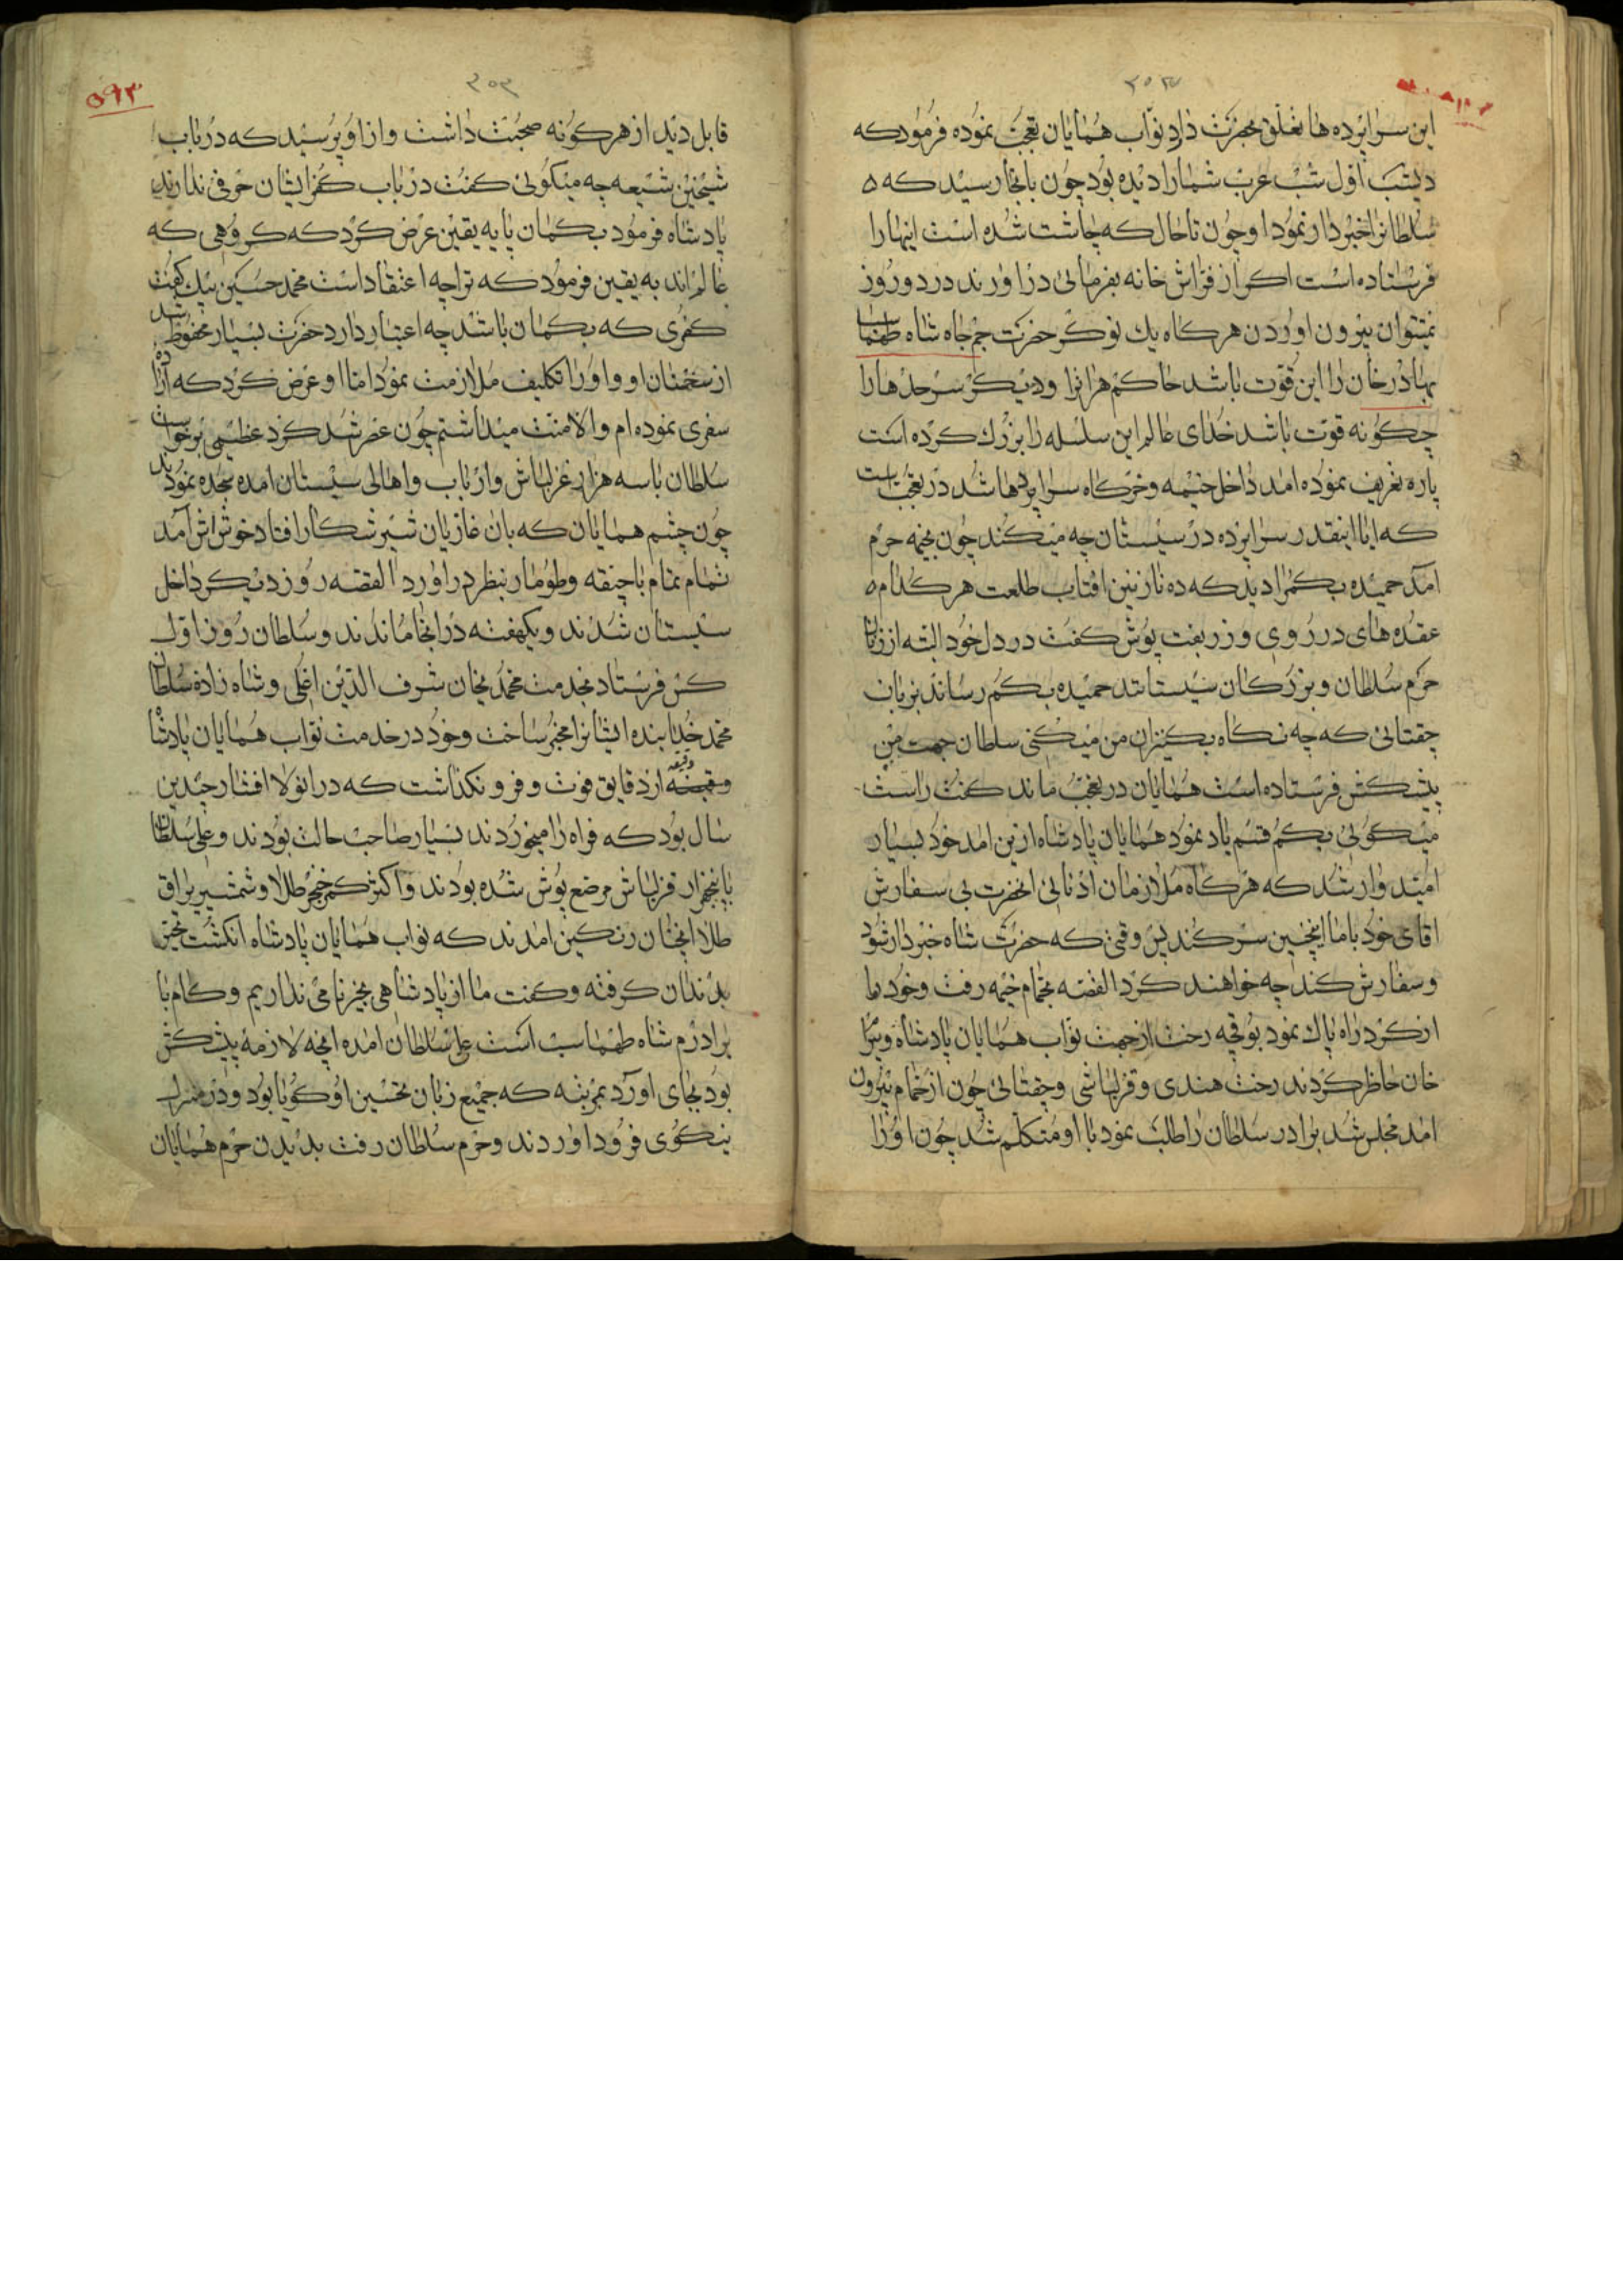 ۳۵۲
این سراپرده ها تعلق بحضرت دارد نواب همایان تعجب نموده فرمودکه
دیشب اول شب عرب شمارا دیده بود چون بانجا رسید که
سلطانرا خبردار نمود او چون تا حال که چاشت شده است اینهارا
فرستاده است اکر از فراش خانه بفرمائی دراورند در دو روز
نمیتوان بیرون اوردن هرکاه یك نوکر حضرت جم جاه شاه طهماسب
بهادرخان را این قوت باشد حاکم هراترا ودیکر سرحدها را
چکونه قوت باشد خدای عالم این سلسله را بزرك کرده است
پاره تعریف نموده امد داخل خیمه وخرکاه سراپردها شد در تعجب است
که ایا اینقدر سراپرده در سیستان چه میکند چون بخیمه حرم
امد حمیده بیکمرا دید که ده نازنین افتاب طلعت هر کدام
عقدهای در روی و زربفت پوش کفت در دل خود البته از زنان
حرم سلطان وبزرکان سیستانند حمیده بیکم رساند بزبان
چغتائی که چه نکاه بکنیزان من میکنی سلطان جهت من
پیشکش فرستاده است همایان در تعجب ماند کفت راست
میکوئی بیکم قسم یاد نمود همایان پادشاه ازین امد خود بسیار
امیدوار شد که هرکاه ملازمان ادنائی انحضرت بی سفارش
اقای خود باما اینچنین سر کند پس وقتی که حضرت شاه خبردار شود
وسفارش کند چه خواهند کرد القصه بحمام خیمه رفت وخود را
از کرد راه پاك نمود بوقچه رخت از جهت نواب همایان پادشاه وبیرام
خان حاظر کردند رخت هندی وقزلباشی وچغتائی چون از حمام بیرون
امد مجلس شد برادر سلطان را طلب نمود با او متکلم شد چون اورا
۵۹۳
۳۵۳
قابل دید از هرکونه صحبت داشت وازاو پرسید که درباب
شیخین شیعه چه میکوئی کفت درباب کفر ایشان حرفی ندارند
پادشاه فرمود بکمان یا به یقین عرض کرد که کروهی که
عالم اند به یقین فرمود که تراچه اعتقاد است محمد حسین بیك کفت
کفری که بکمان باشد چه اعتبار دارد حضرت بسیار محفوظ شد
از سخنان او واورا تکلیف ملازمت نمود اما او عرض کرد که ارادهٔ
سفری نموده ام والا منت میداشتم چون عصر شد کرد عظیمی برخواست
سلطان با سه هزار قزلباش وارباب واهالی سیستان امده سجده نمودند
چون چشم همایان که بان غازیان شیر شکار افتاد خوش اش آمد
تمام تمام باجیقه وطومار بنظر دراورد القصه روز دیکر داخل
سیستان شدند ویکهفته درانجا ماندند وسلطان روز اول
کس فرستاد بخدمت محمد یخان شرف الدین اغلی وشاه زاده سلطان
محمد خدابنده ایشانرا مخبر ساخت وخود درخدمت نواب همایان پادشاه
دقیقه از دقایق فوت وفرونکذاشت که درانولا افشار چندین
سال بود که فراه را میخوردند بسیار صاحب حالت بودند وعلی سلطان
باپنجهزار قزلباش مرصع پوش شده بودند واکثر کمر خنجر طلا وشمشیر یراق
طلا انچنان رنکین امدند که نواب همایان پادشاه انکشت تحیر
بدندان کرفته وکفت ما از پادشاهی بجز نامی نداریم وکام با
برادرم شاه طهماسب است علی سلطان امده انچه لازمهٔ پیشکش
بود بجای اورد بمرتبه که جمیع زبان تحسین او کویا بود ودر منزل
نیکوی فرود اوردند وحرم سلطان رفت بدیدن حرم همایان